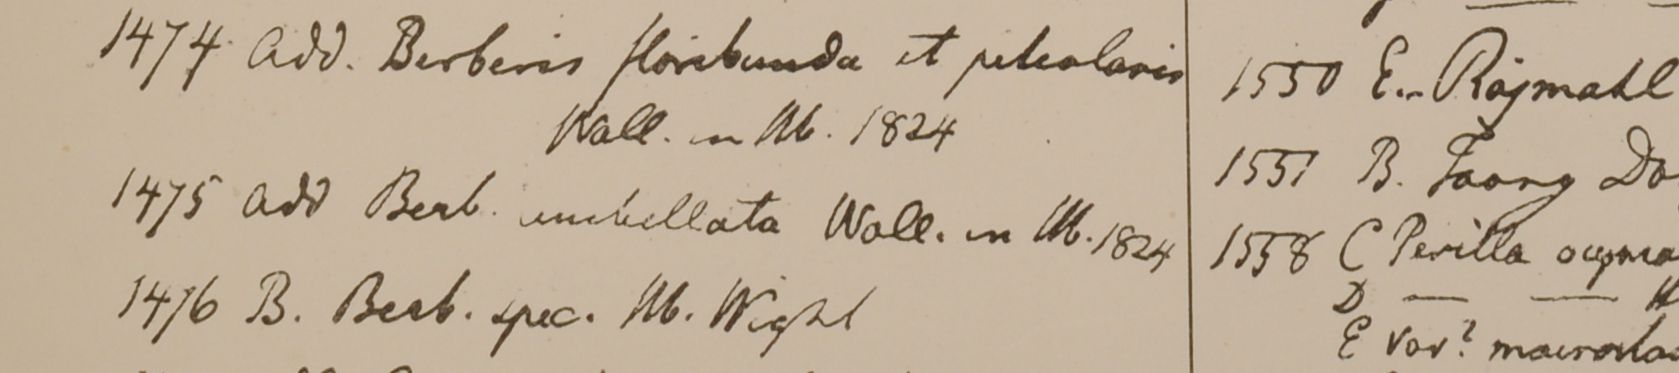 1474 add. Berberis floribunda et petiolaris
Wall. in Hb. 1824
1475 add Berb. umbellata Wall. in Hb. 1824
1476 B. Berb. spec. Hb. Wight
1550 E.. Rajmahl
1551 B. Taong Do
1558 C Perilla ocyma
D — —
E var? macrosta